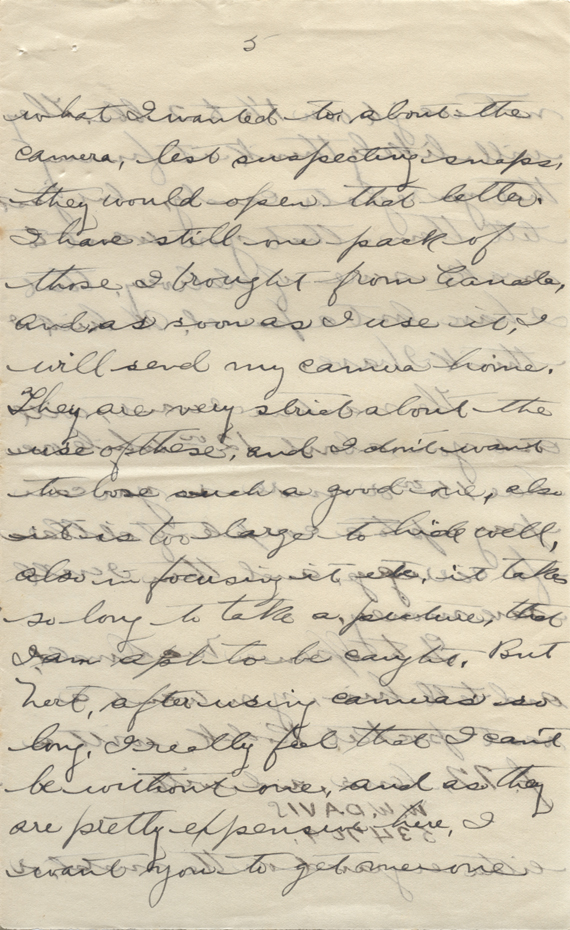 5
what I wanted to, about the
camera, lest suspecting snaps,
they would open that letter.
I have still one pack of
those I brought from Canada,
and as soon as I use it, I
will send my camera home.
They are very strict about the
use of these, and I don't want
to lose such a good one, also
it is too large to hide well,
also in focusing it etc, it takes
so long to take a picture, that
I am apt to be caught. But
Nert, after using cameras so
long, I really feel that I can't
be without one, and as they
are pretty expensive here, I
want you to get me one
W.W. DAVIS